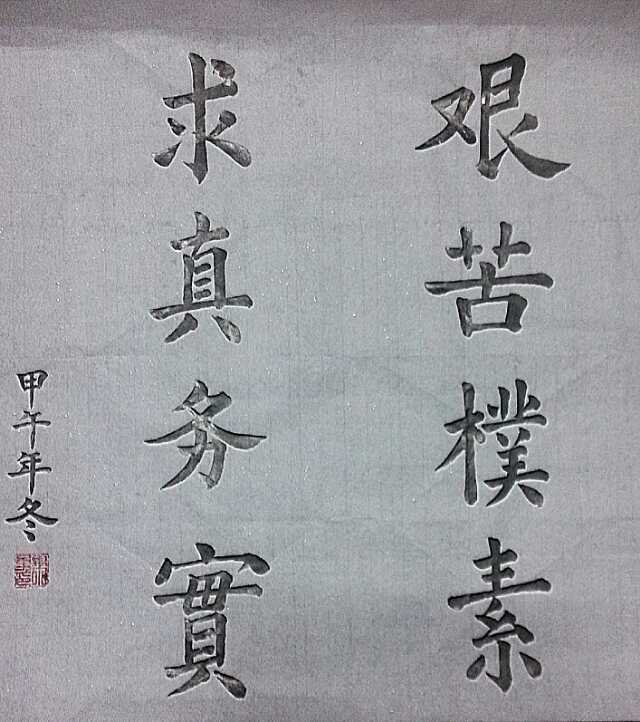 艰苦樸素
求真务實
甲午年冬